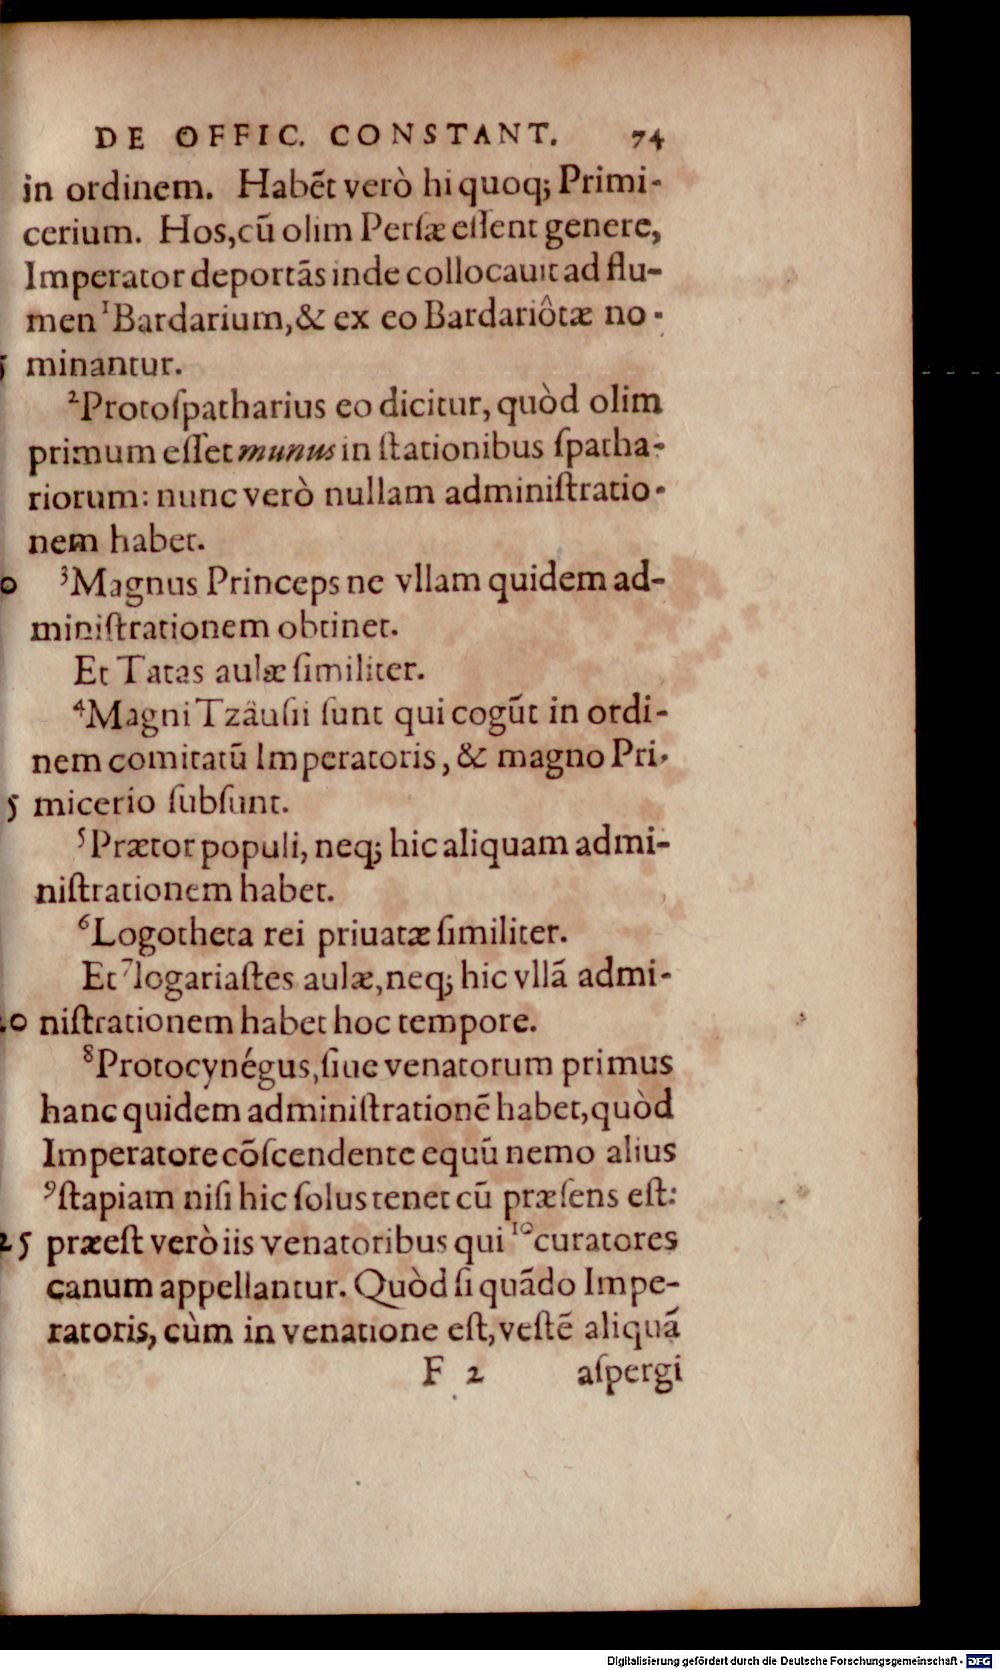 DE OFFIC. CONSTANT. 74
in ordinem. Habẽt verò hi quoq; Primi-
cerium. Hos, cũ olim Persæ eſſent genere,
Imperator deportãs inde collocauit ad flu-
men ¹Bardarium, & ex eo Bardariôtæ no-
5 minantur.
²Protoſpatharius eo dicitur, quòd olim
primum eſſet munus in ſtationibus ſpatha-
riorum: nunc verò nullam adminiſtratio-
nem habet.
0 ³Magnus Princeps ne vllam quidem ad-
miniſtrationem obtinet.
Et Tatas aulæ ſimiliter.
⁴Magni Tzâuſii ſunt qui cogũt in ordi-
nem comitatũ Imperatoris, & magno Pri-
5 micerio ſubſunt.
⁵Prætor populi, neq; hic aliquam admi-
niſtrationem habet.
⁶Logotheta rei priuatæ ſimiliter.
Et ⁷logariaſtes aulæ, neq; hic vllã admi-
20 niſtrationem habet hoc tempore.
⁸Protocynégus, ſiue venatorum primus
hanc quidem adminiſtrationẽ habet, quòd
Imperatore cõſcendente equũ nemo alius
⁹ſtapiam niſi hic ſolus tenet cũ præſens eſt:
25 præeſt verò iis venatoribus qui ¹⁰curatores
canum appellantur. Quòd ſi quãdo Impe-
ratoris, cùm in venatione eſt, veſtẽ aliquã
F 2 aſpergi
Digitalisierung gefördert durch die Deutsche Forschungsgemeinschaft - DFG